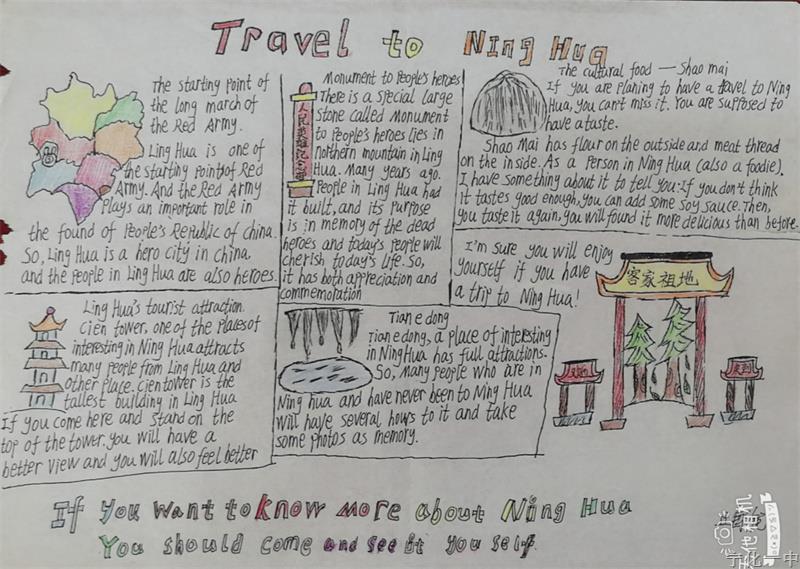 Travel to Ning Hua
The starting point of
the long march of
the Red Army.
Ling Hua is one of
the starting point of Red
Army. And the Red Army
Plays an important role in
the found of People's Republic of china.
So, Ling Hua is a hero city in china,
and the people in Ling Hua are also heroes.
Monument to People's heroes
There is a special large
stone called Monument
to People's heroes lies in
northern mountain in Ling
Hua. Many years ago.
People in Ling Hua had
it built, and its purpose
is in memory of the dead
heroes and today's people will
cherish today's life. So,
it has both appreciation and
commemoration
人民英雄纪念碑
The cultural food — Shao mai
If you are planing to have a travel to Ning
Hua, you can't miss it. You are supposed to
have a taste.
Shao Mai has flour on the outside and meat thread
on the inside. As a Person in Ning Hua (also a foodie).
I have something about it to tell you: If you don't think
it tastes good enough, you can add some soy sauce. Then,
you taste it again, you will found it more delicious than before.
I'm sure you will enjoy
yourself if you have
a trip to Ning Hua!
客家祖地
Ling Hua's tourist attraction.
Cien tower, one of the places of
interesting in Ning Hua attracts
many people from Ling Hua and
other place. Cien tower is the
tallest building in Ling Hua
If you come here and stand on the
top of the tower, you will have a
better view and you will also feel better
Tian e dong
Tian e dong, a place of interesting
in Ning Hua has full attractions.
So, many people who are in
Ning hua and have never been to Ning Hua
will have several hours to it and take
some photos as memory.
If You Want to know More about Ning Hua
You should come and see it you self.
宁化一中